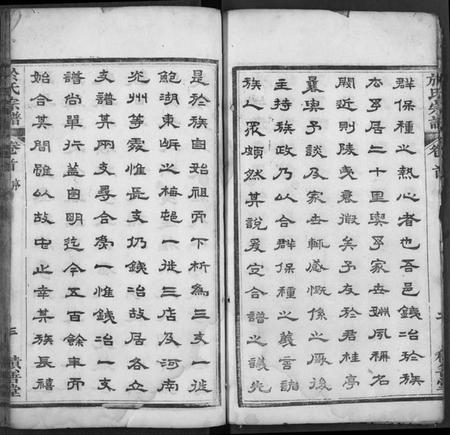 群保種之熱心者也吾邑錢冶於族
去予居二十里與予家世姻夙稱名
閥近則陵夷衰微矣予友於君桂亭
曩與予談及家世輒慼慨係之厥後
主持族政乃以合群保種之義言諸
族人眾頗然其說爰定合譜之議先
於氏宗譜
卷首
二
積善堂
是於族自始祖而下析為三支一徙
鮑湖東岍之梅邨一徙三店及河南
光州等處惟長支仍錢冶故居各立
支譜其兩支尋合為一惟錢冶一支
譜尚單行蓋自明迄今五百餘年而
始合其間雖以故中止幸其族長禧
於氏宗譜
卷首
序
三
積善堂